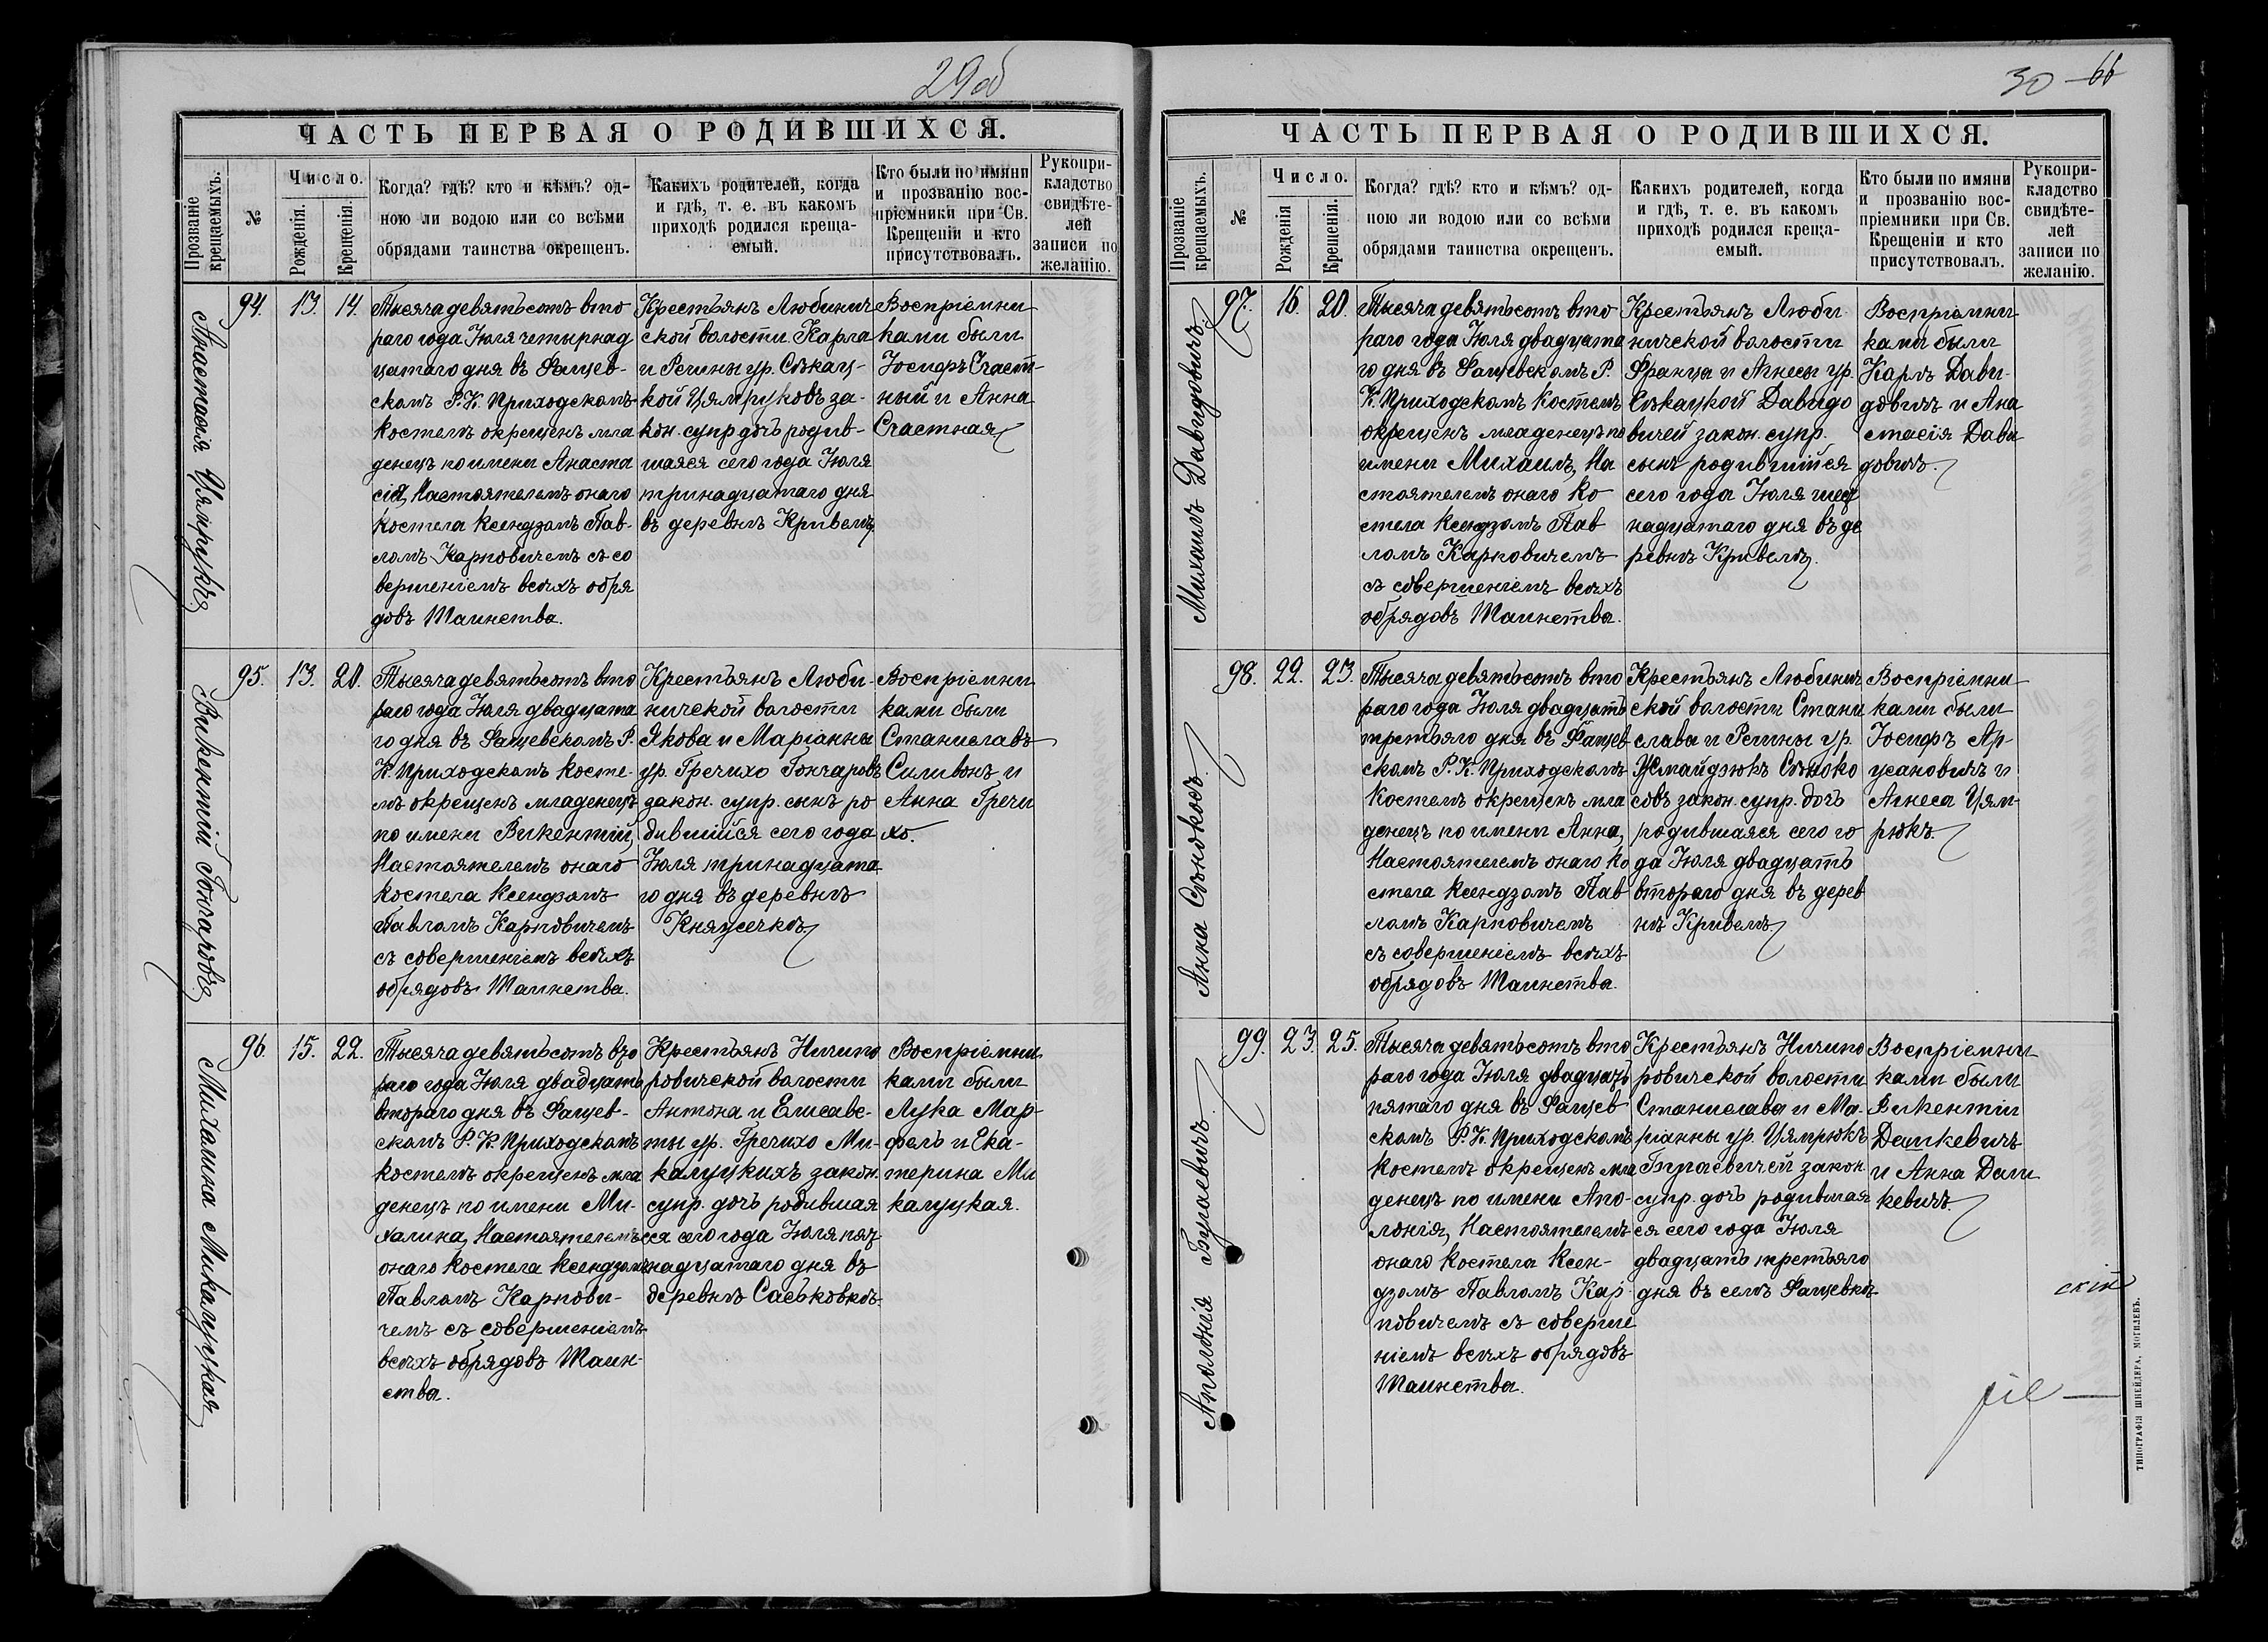 29об
ЧАСТЬ ПЕРВАЯ О РОДИВШИХСЯ.
Прозваніе крещаемыхъ.
№
Число.
Рожденія.
Крещенія.
Когда? гдѣ? кто и кѣмъ? од-
ною ли водою или со всѣми
обрядами таинства окрещенъ.
Какихъ родителей, когда
и гдѣ, т. е. въ какомъ
приходѣ родился креща-
емый.
Кто были по имяни
и прозванію вос-
пріемники при Св.
Крещеніи и кто
присутствовалъ.
Рукопри-
кладство
свидѣте-
лей
записи по
желанію.
Анастасія Цямрукъ
94.
13.
14.
Тысяча девятьсотъ вто
раго года Іюля четырнад
цатаго дня въ Фащев-
скомъ Р. К. Приходскомъ
костелѣ окрещенъ мла
денецъ по имени Анаста
сія, Настоятелемъ онаго
костела Ксендзомъ Пав-
ломъ Карповичемъ съ со
вершеніемъ всѣхъ обря
довъ Таинства.
Крестьянъ Любинич
ской волости Карла
и Регины ур. Сѣкац-
кой Цямруковъ за-
кон. супр. дочь родив-
шаяся сего года Іюля
тринадцатаго дня
въ деревнѣ Кривелѣ
Воспріемни
ками были
Іосифъ Счаст-
ный и Анна
Счастная
Викентій Гончаровъ
95.
13.
20.
Тысяча девятьсотъ вто
раго года Іюля двадцата
го дня въ Фащевскомъ Р.
К. Приходскомъ косте-
лѣ окрещенъ младенецъ
по имени Викентій,
Настоятелемъ онаго
костела Ксендзомъ
Павломъ Карповичемъ
съ совершеніемъ всѣхъ
обрядовъ Таинства.
Крестьянъ Люби-
ничской волости
Якова и Маріанны
ур. Гречихо Гончаровъ
закон. супр. сынъ ро
дившійся сего года
Іюля тринадцата
го дня въ деревнѣ
Княжескъ
Воспріемни
ками были
Станиславъ
Силивонъ и
Анна Гречи
хо.
Михалина Микалуцкая
96.
15.
22.
Тысяча девятьсотъ вто
раго года Іюля двадцать
втораго дня въ Фащев-
скомъ Р. К. Приходскомъ
костелѣ окрещенъ мла
денецъ по имени Ми-
халина, Настоятелемъ
онаго костела Ксендзомъ
Павломъ Карпови-
чемъ съ совершеніемъ
всѣхъ обрядовъ Таин-
ства.
Крестьянъ Ничипо
ровичской волости
Антона и Елисаве-
ты ур. Гречихо Ми-
калуцкихъ закон.
супр. дочь родившая
ся сего года Іюля пят
надцатаго дня въ
деревнѣ Саськовкѣ
Воспріемни
ками были
Лука Мар-
фель и Ека-
терина Ми
калуцкая.
30 — 66
ЧАСТЬ ПЕРВАЯ О РОДИВШИХСЯ.
Прозваніе крещаемыхъ.
№
Число.
Рожденія
Крещенія.
Когда? гдѣ? кто и кѣмъ? од-
ною ли водою или со всѣми
обрядами таинства окрещенъ.
Какихъ родителей, когда
и гдѣ, т. е. въ какомъ
приходѣ родился креща-
емый.
Кто были по имяни
и прозванію вос-
пріемники при Св.
Крещеніи и кто
присутствовалъ.
Рукопри-
кладство
свидѣте-
лей
записи по
желанію.
Михаилъ Давидовичъ
97.
16.
20.
Тысяча девятьсотъ вто
раго года Іюля двадцата
го дня въ Фащевскомъ Р.
К. Приходскомъ Костелѣ
окрещенъ младенецъ по
имени Михаилъ, На
стоятелемъ онаго ко
стела Ксендзомъ Пав
ломъ Карповичемъ
съ совершеніемъ всѣхъ
обрядовъ Таинства.
Крестьянъ Люби
ничской волости
Франца и Агнесы ур.
Сѣкацкой Давидо
вичей закон. супр.
сынъ родившійся
сего года Іюля шест
надцатаго дня въ де
ревнѣ Кривелѣ.
Воспріемни
ками были
Карлъ Дави-
довичъ и Ана
стасія Дави
довичъ.
Анна Сѣнокосъ
98.
22.
23.
Тысяча девятьсотъ вто
раго года Іюля двадцать
третьяго дня въ Фащев
скомъ Р. К. Приходскомъ
Костелѣ окрещенъ мла
денецъ по имени Анна,
Настоятелемъ онаго ко
стела Ксендзомъ Пав
ломъ Карповичемъ
съ совершеніемъ всѣхъ
обрядовъ Таинства.
Крестьянъ Любинич
ской волости Стани
слава и Регины ур.
Жмайдзюкъ Сѣноко
совъ закон. супр. дочь
родившаяся сего го
да Іюля двадцать
втораго дня въ дерев
нѣ Кривелѣ
Воспріемни
ками были
Іосифъ Ар-
усановичъ и
Агнеса Цям-
рюкъ.
Аполонія Бугаевичъ
99.
23.
25.
Тысяча девятьсотъ вто
раго года Іюля двадцать
пятаго дня въ Фащев
скомъ Р. К. Приходскомъ
Костелѣ окрещенъ мла
денецъ по имени Апо-
лонія, Настоятелемъ
онаго Костела Ксен-
дзомъ Павломъ Кар
повичемъ съ соверше
ніемъ всѣхъ обрядовъ
Таинства.
Крестьянъ Ничипо
ровичской волости
Станислава и Ма-
ріанны ур. Цямрюкъ
Бугаевичей закон.
супр. дочь родившая
ся сего года Іюля
двадцать третьяго
дня въ селѣ Фащевкѣ
Воспріемни
ками были
Викентій
Дашкевичъ
и Анна Даш
кевичъ.
скій
ТИПОГРАФІЯ ШНЕЙДЕРА, МОГИЛЕВЪ.